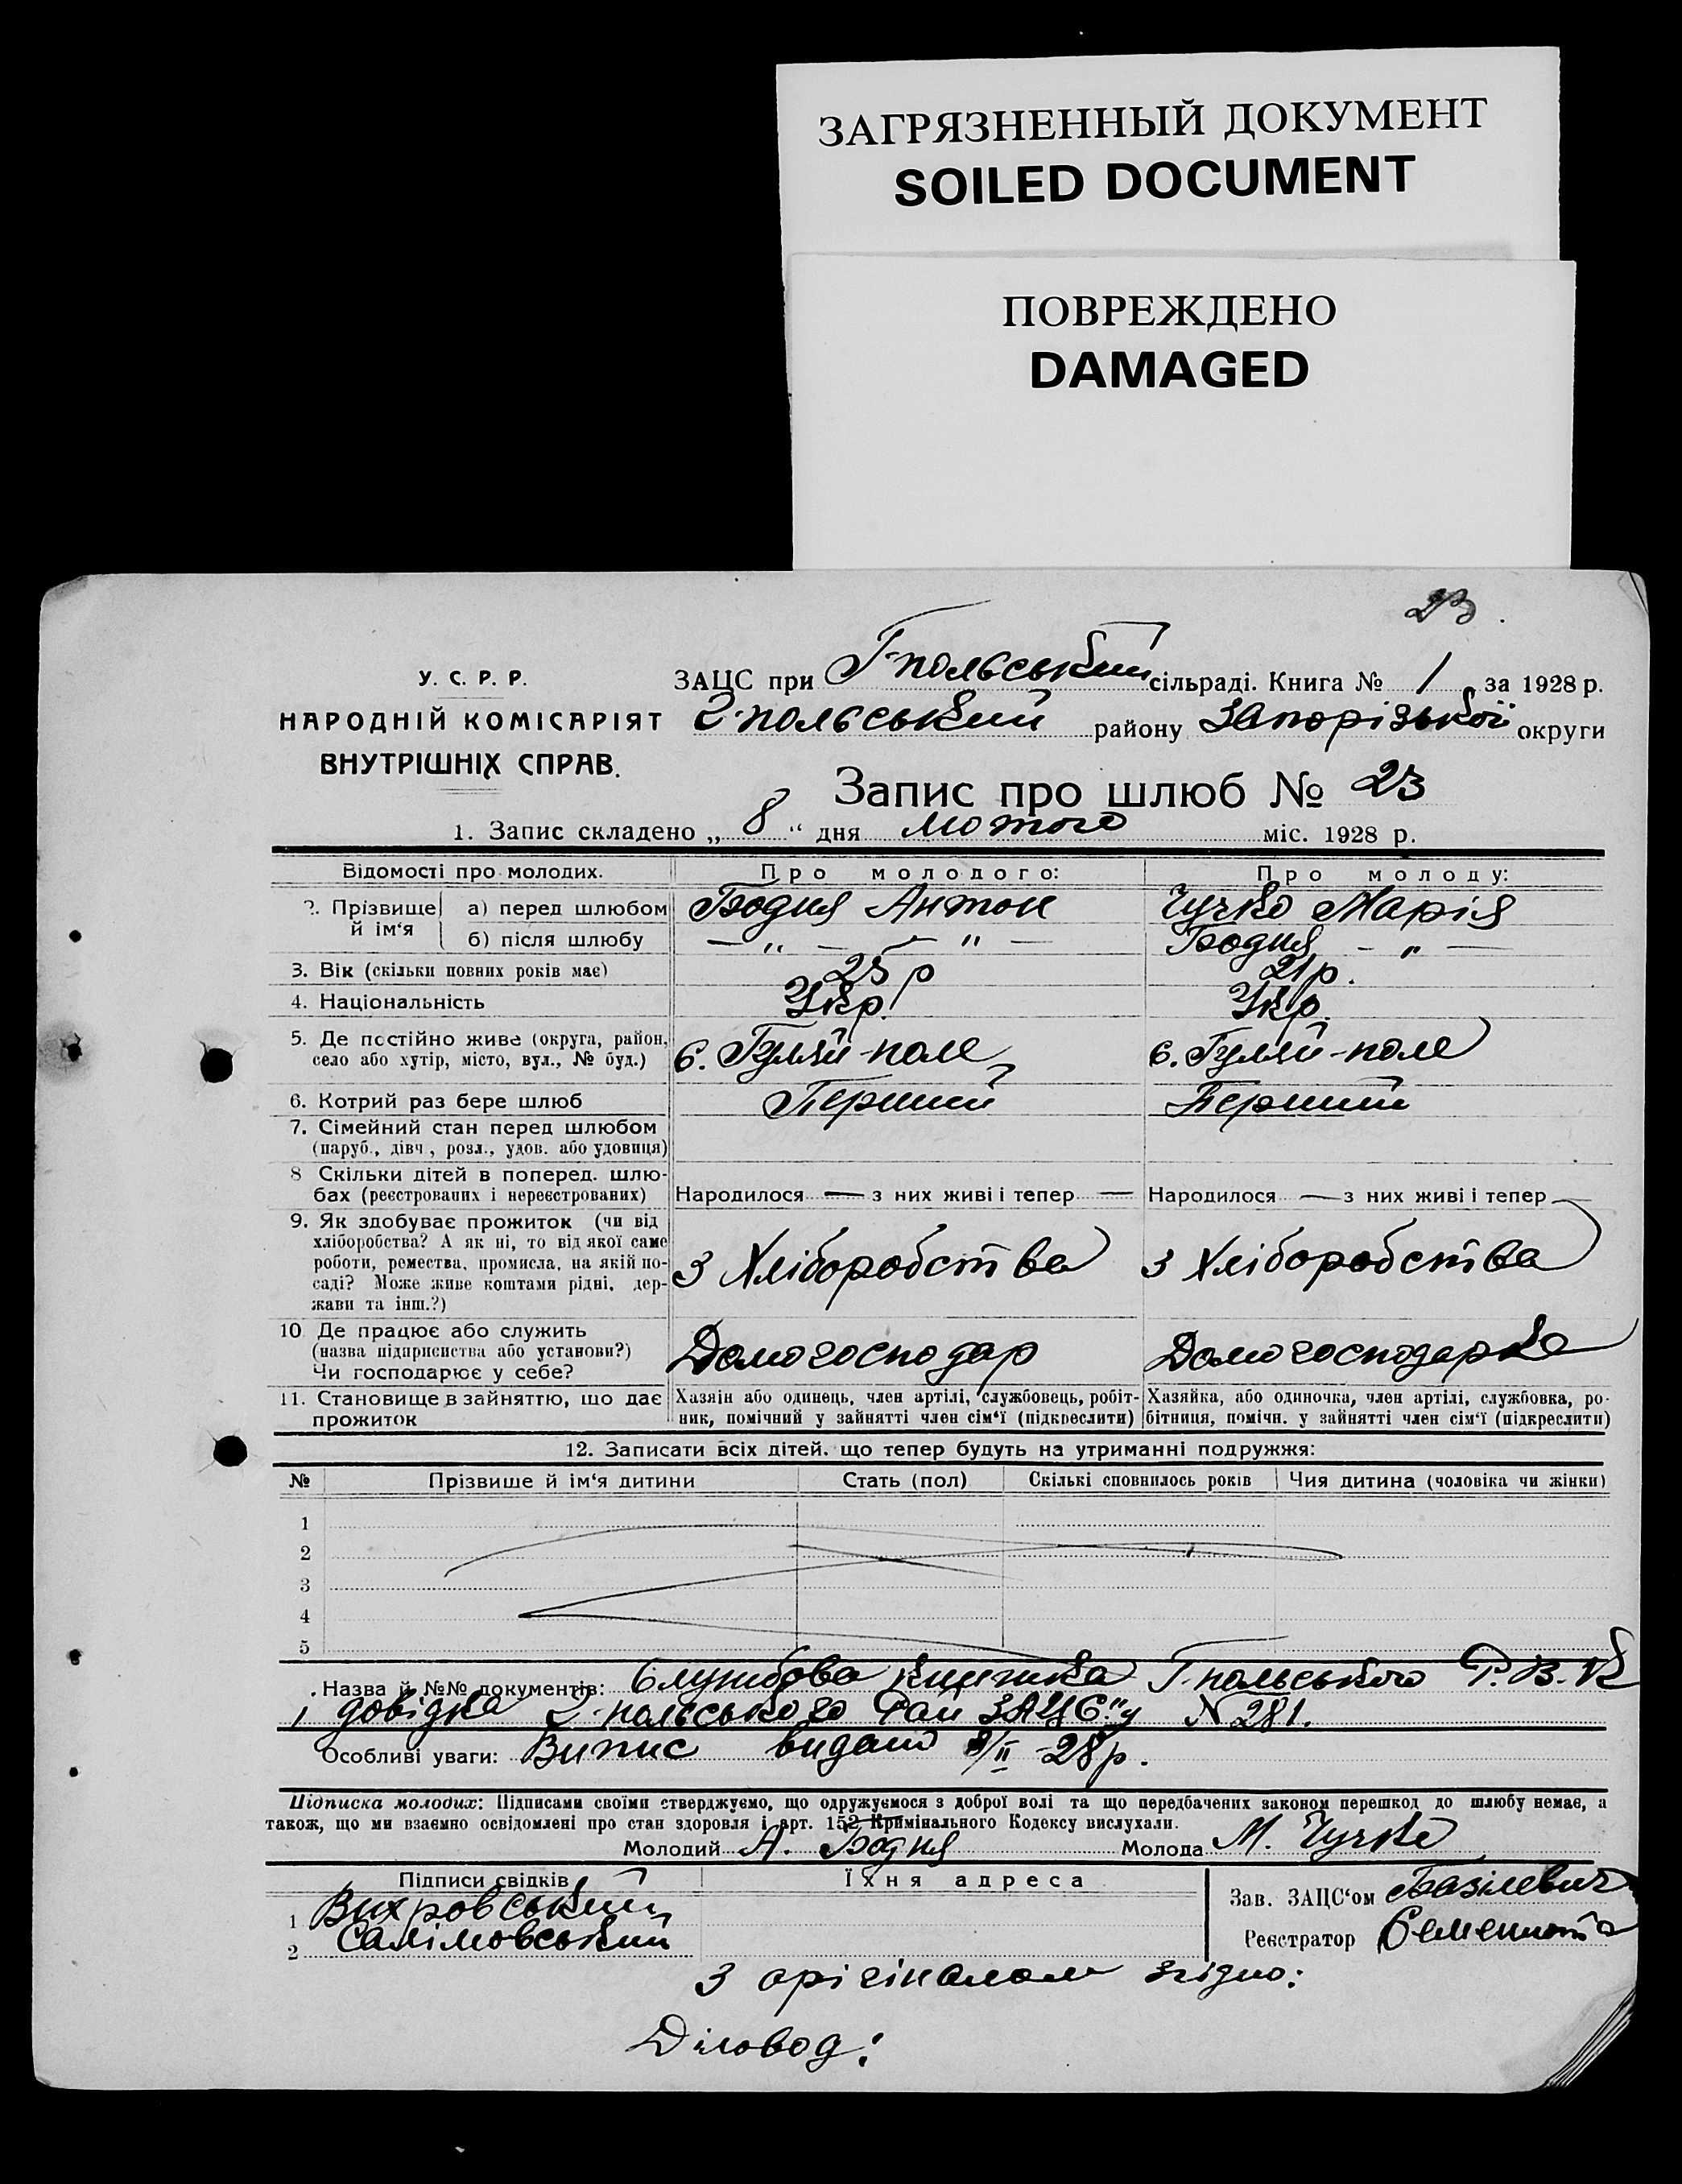 ЗАГРЯЗНЕННЫЙ ДОКУМЕНТ
SOILED DOCUMENT
ПОВРЕЖДЕНО
DAMAGED
23
У. С. Р. Р.
НАРОДНІЙ КОМІСАРІЯТ
ВНУТРІШНІХ СПРАВ.
ЗАЦС при Г-польський сільраді. Книга № 1 за 1928 р.
Г-польський району Запорізької округи
Запис про шлюб № 23
1. Запис складено „ 8 “ дня лютого міс. 1928 р.
Відомості про молодих. Про молодого: Про молоду:
2. Прізвище й ім‘я а) перед шлюбом Бодня Антон Чучко Марія
б) після шлюбу — „ — — „ — Бодня — „ —
3. Вік (скільки повних років має) 23 р 21 р.
4. Національність Укр. Укр.
5. Де постійно живе (округа, район, село або хутір, місто, вул., № буд.) с. Гуляй-поле с. Гуляй-поле
6. Котрий раз бере шлюб Перший Перший
7. Сімейний стан перед шлюбом
(паруб., дівч., розл., удов. або удовиця)
8 Скільки дітей в поперед. шлю-
бах (реєстрованих і нереєстрованих) Народилося — з них живі і тепер — Народилося — з них живі і тепер —
9. Як здобуває прожиток (чи від
хліборобства? А як ні, то від якої саме
роботи, ремества, промисла, на якій по-
саді? Може живе коштами рідні, дер-
жави та інш.?) З Хліборобства З Хліборобства
10 Де працює або служить
(назва підприємства або установи?)
Чи господарює у себе? Домогосподар Домогосподарка
11. Становище в зайняттю, що дає прожиток
Хазяїн або одинець, член артілі, службовець, робіт-
ник, помічний у зайнятті член сім‘ї (підкреслити)
Хазяйка, або одиночка, член артілі, службовка, ро-
бітниця, помічн. у зайнятті член сім‘ї (підкреслити)
12. Записати всіх дітей. що тепер будуть на утриманні подружжя:
№ Прізвише й ім‘я дитини Стать (пол) Скількі сповнилось років Чия дитина (чоловіка чи жінки)
1
2
3
4
5
Назва й №№ документів: Службова книжка Г-польського Р.В.К
і довідка Г-польського Рай ЗАЦС"у № 281.
Особливі уваги: Випис видано 8/II-28 р.
Підписка молодих: Підписами своїми стверджуємо, що одружуємося з доброї волі та що передбачених законом перешкод до шлюбу немає, а
також, що ми взаємно освідомлені про стан здоровля і арт. 152 Кримінального Кодексу вислухали.
Молодий А. Бодня Молода М. Чучко
Підписи свідків Їхня адреса
1 Вихровський
2 Салімовський
Зав. ЗАЦС‘ом Базілевич
Реєстратор
З орігіналом згідно:
Діловод: